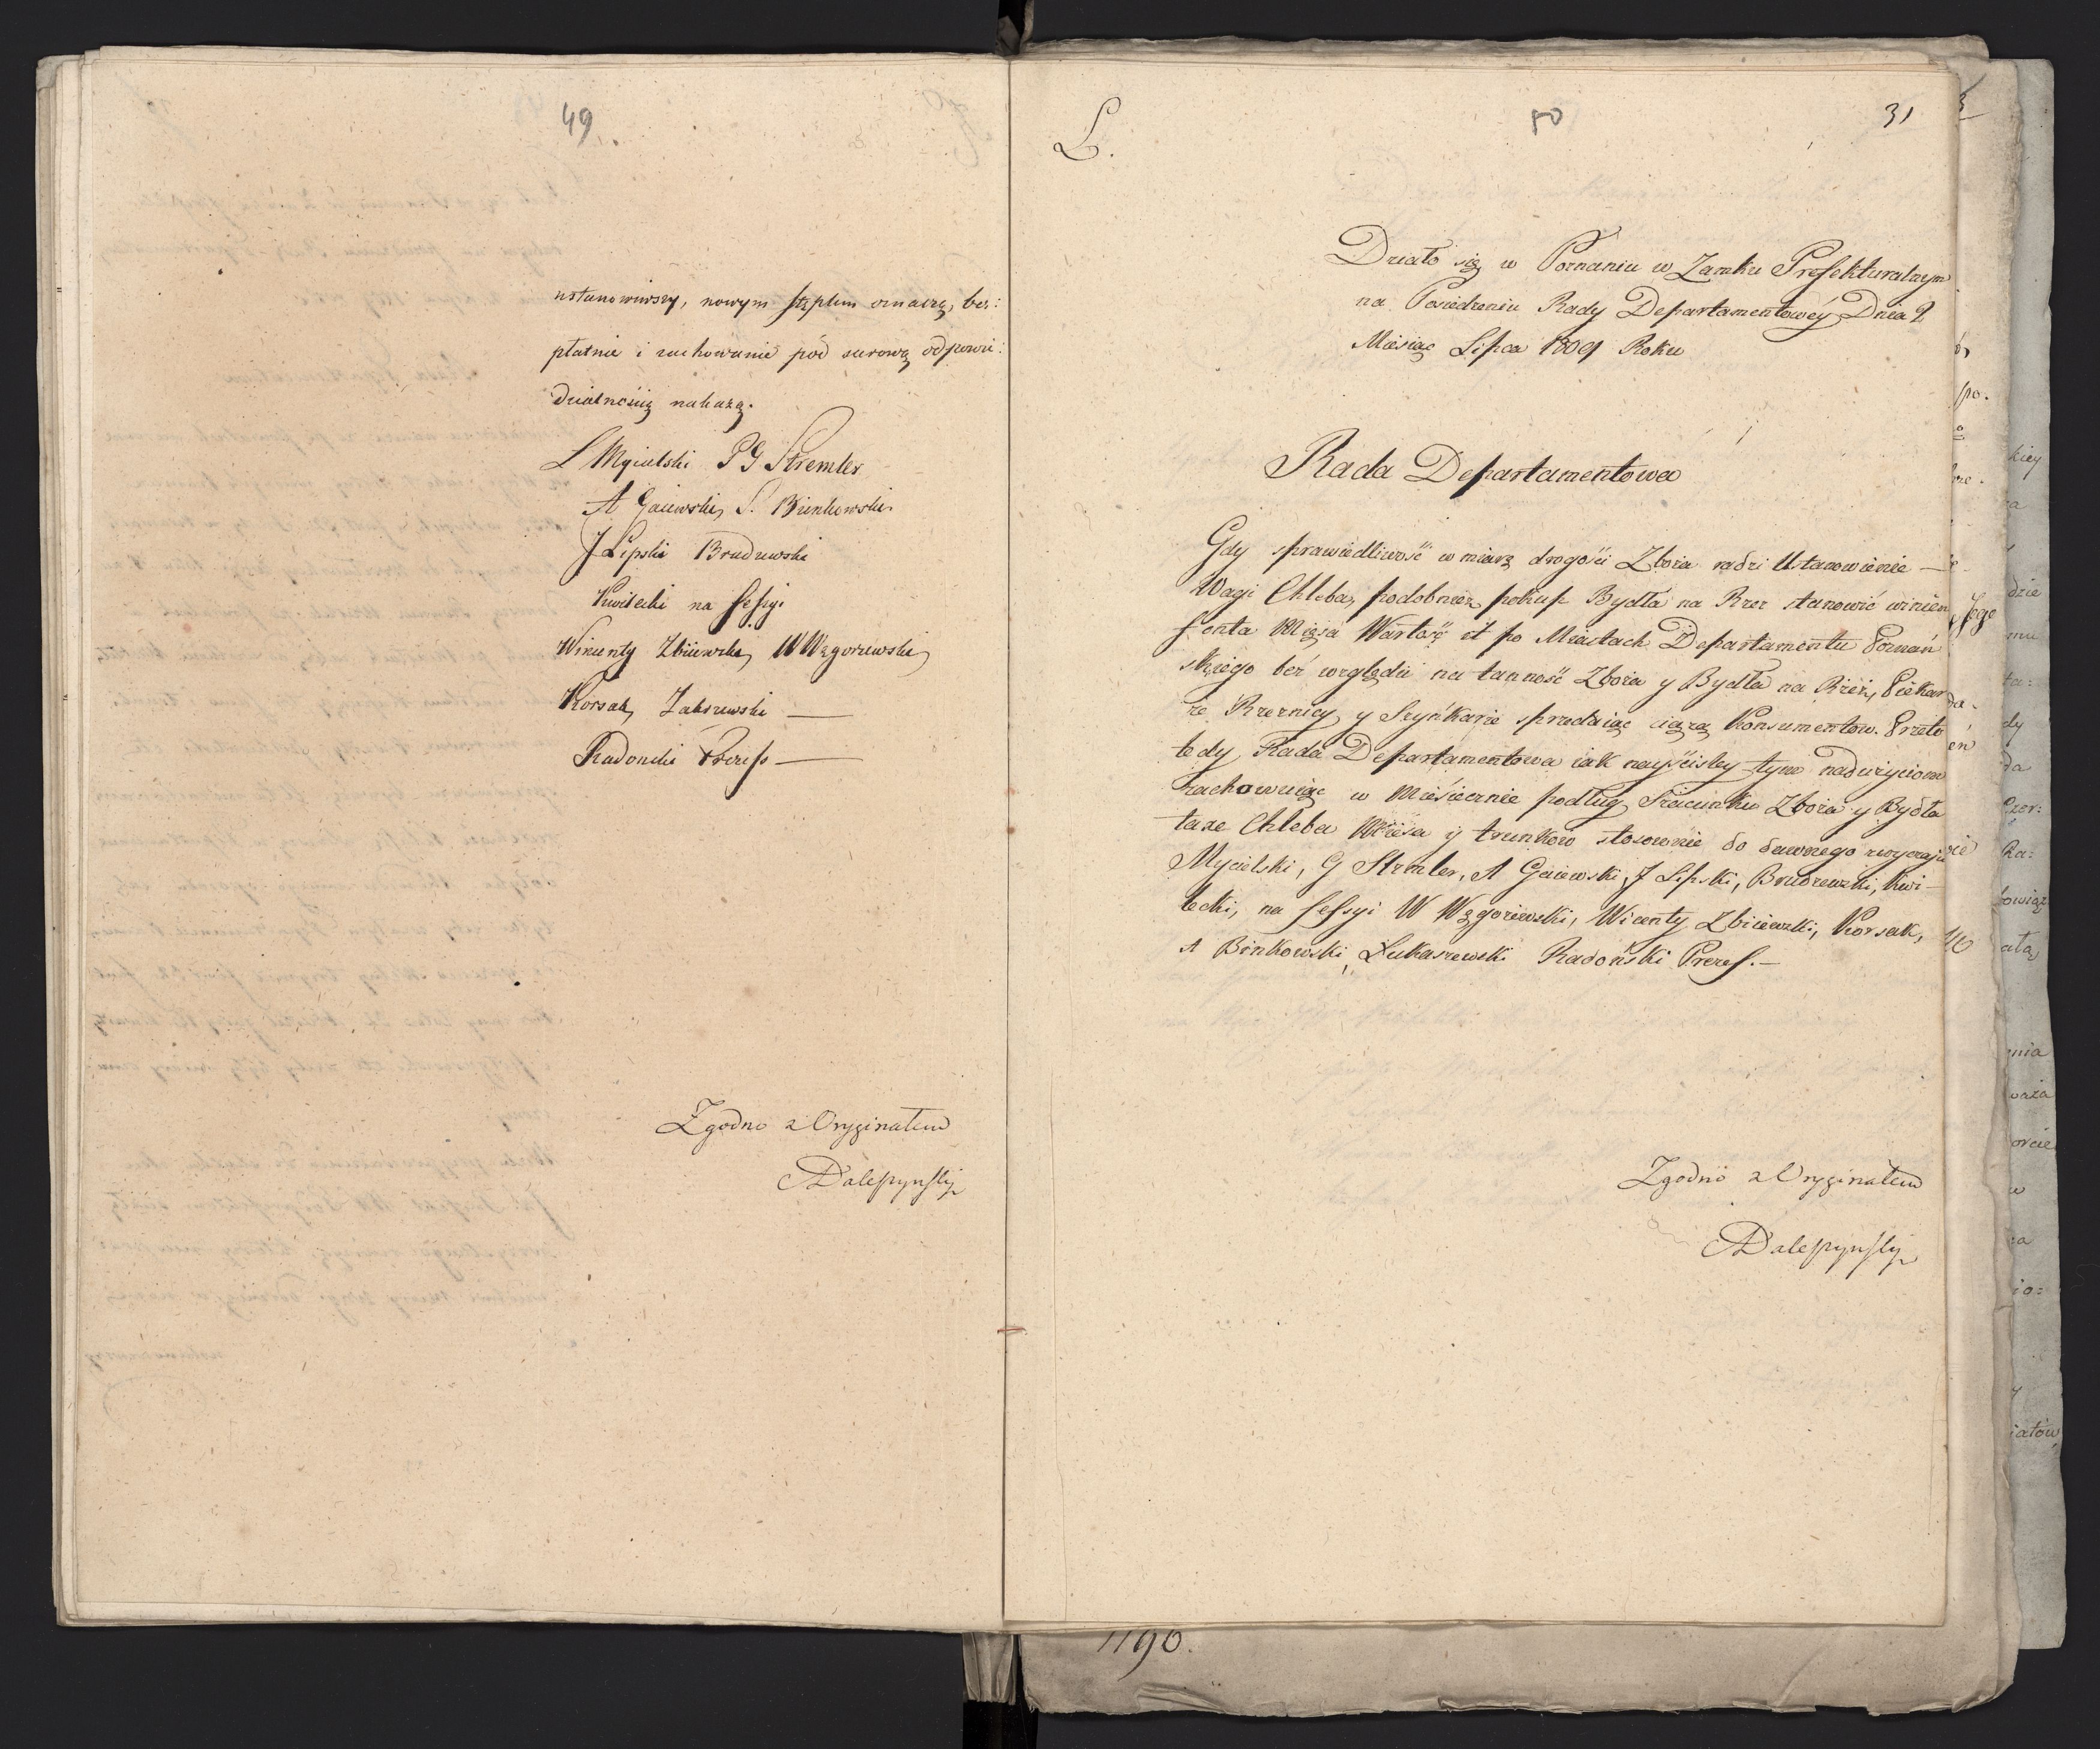 49
ustanowiwszy, nowym stęplem oznaczą, bez:
płatnie i zachowanie pód surową odpowie:
dzialnością nakażą.
L Mycielski P G Stremler
A Gaiewski, S. Binkowski
J Lipski Brudzewski
Kwilecki na Sessyi
Wincenty Zbiiewski, W Węgorzewski
Korsak, Zakrzewski —
Radoński Prezess —
Zgodno z Oryginałem
L.
50
31
Działo się w Poznaniu w Zamku Prefekturalnym
na Posiedzeniu Rady Departamentowéy Dnia 2
Miesiąc Lipca 1809 Roku
Rada Departamentowa
Gdy sprawiedliwość w miarę drogości Zboża radzi Ustanowienie —
Wagi Chleba, podobnież pokup Bydła na Rzez stanowić winien
fonta Mięsa Wartość et po Miastach Departamentu Poznań
skiego beź względu na tanność Zboża y Bydła na Rzeź, Piekar
ze Rzeznicy y Szyńkarze sprzedaiąc ciążą Konsumentow. Przeto
tedy Rada Departamentowa iak nayściśley tym nadużyciom
zachowuiąc w Mieśiecznie podług Szacunku Zboża y Bydła
taxe Chleba Mięsa y trunkow stosownie do dawnego zwyczaju
Mycielski, G Stremler, A Gaiewski, J Lipski, Brudzewski, Kwi-
lecki, na Sessyi W Węgorzewski, Wicenty Zbiiewski, Korsak,
A Binkowski, Łukaszewski Radoński Prezes. —
Zgodno z Oryginałem
1190.